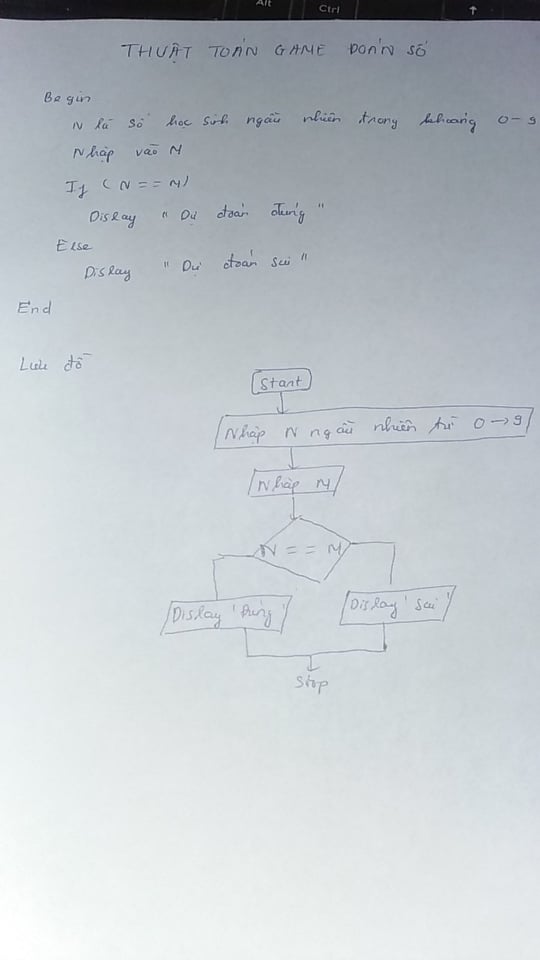 Alt
Ctrl
↑
THUẬT TOÁN GAME ĐOÁN SỐ
Begin
N là số học sinh ngẫu nhiên trong khoảng 0-9
Nhập vào M
If (N == M)
Display "Dự đoán đúng"
Else
Display "Dự đoán sai"
End
Lưu đồ
Start
Nhập N ngẫu nhiên từ 0→9
Nhập M
N == M
Display 'Đúng'
Display 'sai'
Stop